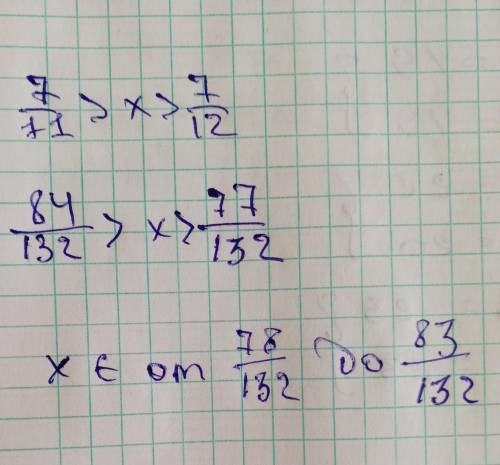 7/11 > x > 7/12
84/132 > x > 77/132
x ∈ от 78/132 до 83/132